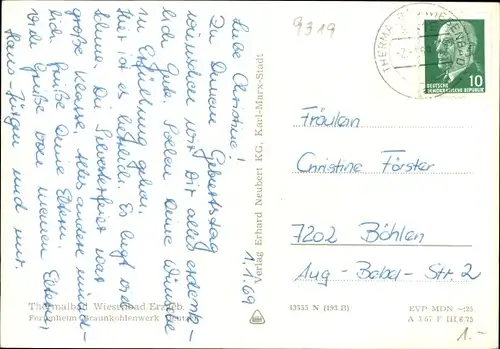 9319
THERMALBAD WIESENBAD
DEUTSCHE
DEMOKRATISCHE REPUBLIK
10
1.1.69
Liebe Christine!
Zu Deinem Geburtstag
wünschen wir Dir alles erdenk-
lich Gute. Sollen Deine Wünsche
in Erfüllung gehen.
Hier ist es herrlich. Es liegt viel
Schnee. Die Silvesterfeier war
große Klasse. Alles andere münd-
lich. Grüße Deine Eltern.
Viele Grüße von meinen Eltern,
Hans-Jürgen und mir.
Verlag Erhard Neubert KG, Karl-Marx-Stadt
Fräulein
Christine Förster
7202 Böhlen
Aug.-Bebel-Str. 2
Thermalbad Wiesenbad/Erzgeb.
Ferienheim Braunkohlenwerk
43555 N (193 II)
EVP MDN -,25
A 3 67 F III/6/75
1.-